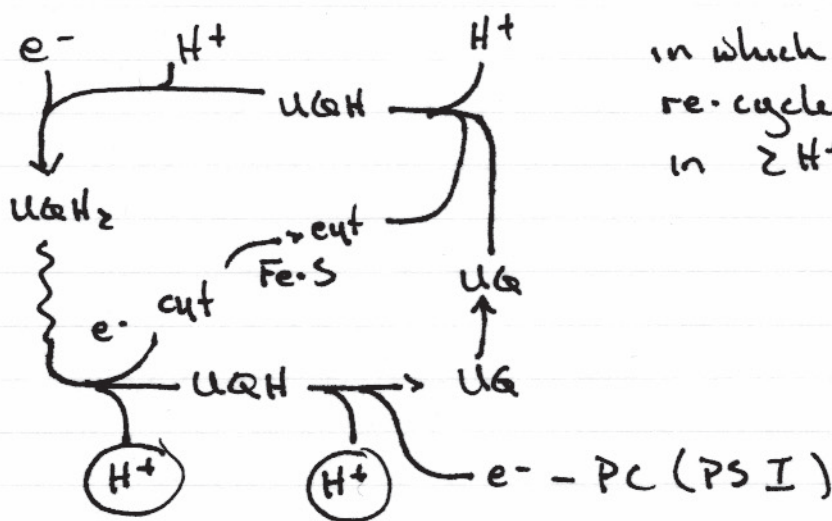 e⁻ H⁺ H⁺ in which
UQH re-cycle
in 2H⁺
UQH₂
cyt
Fe·S
cyt UQ
e⁻
UQH UQ
H⁺ H⁺ e⁻ – PC (PS I)